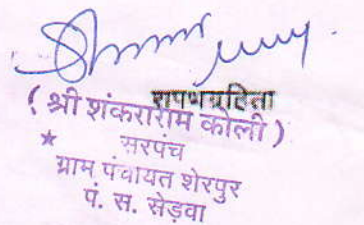 शपथग्रहिता
( श्री शंकराराम कोली )
★ सरपंच
ग्राम पंचायत शेरपुर
पं. स. सेड़वा